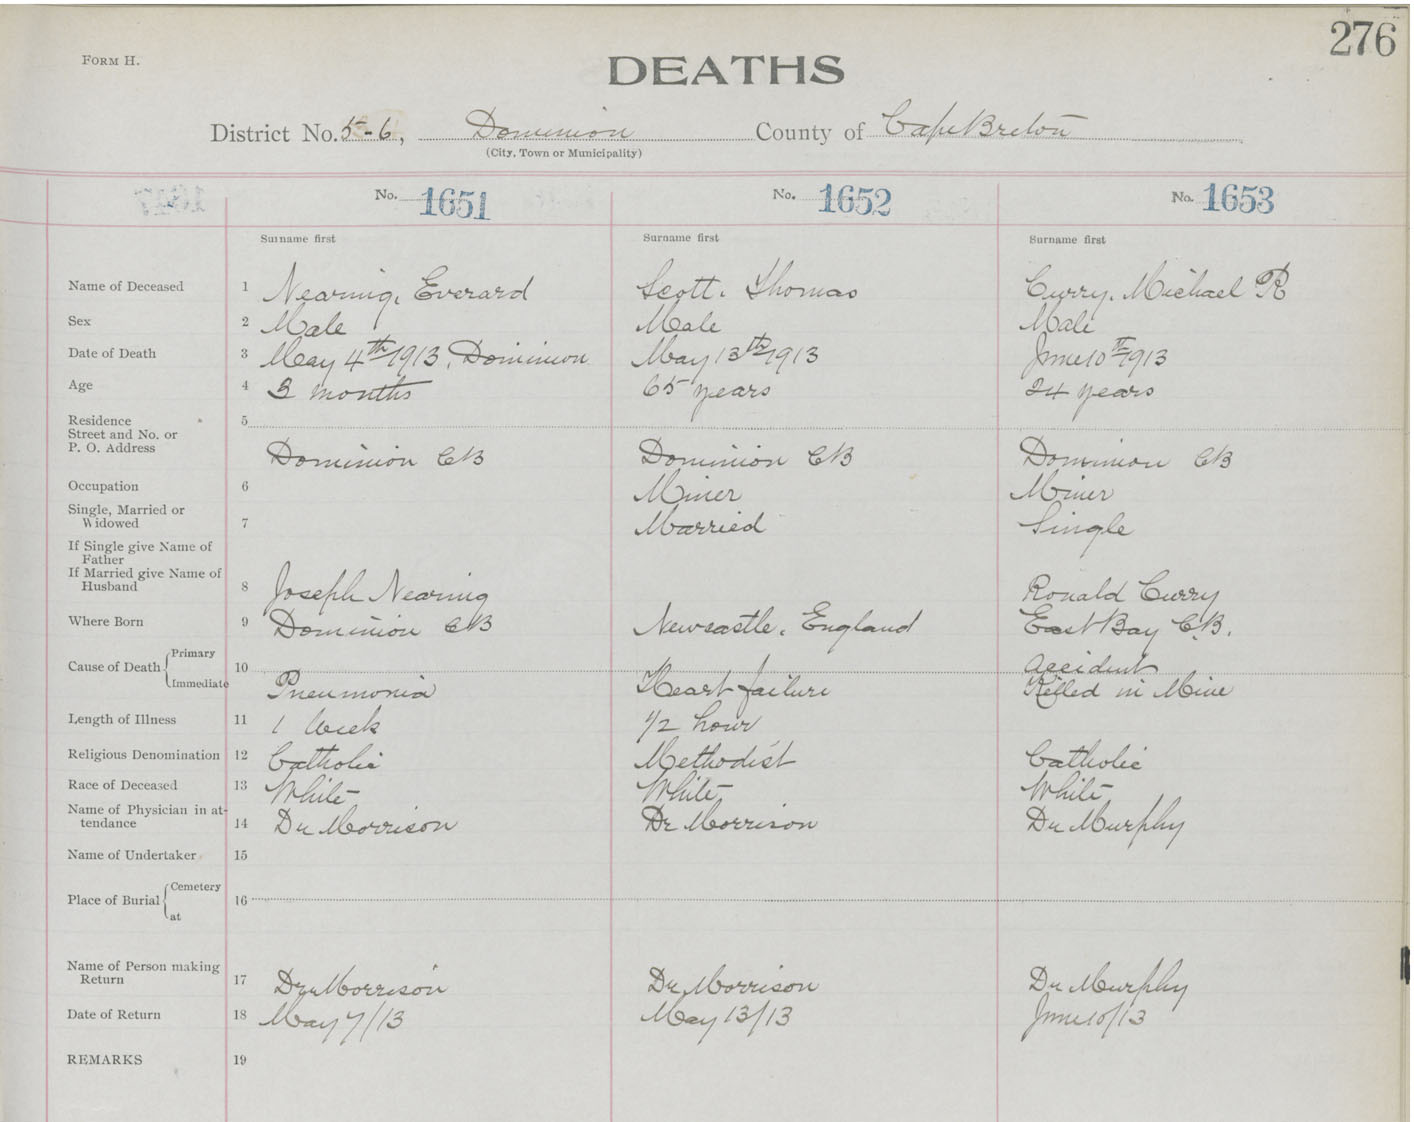 276
FORM H.
DEATHS
District No. 5-6, Dominion County of Cape Breton
(City, Town or Municipality)
No. 1651 No. 1652 No. 1653
Surname first Surname first Surname first
Name of Deceased 1 Nearing, Everard Scott, Thomas Curry, Michael R
Sex 2 Male Male Male
Date of Death 3 May 4th 1913, Dominion May 13th 1913 June 10th 1913
Age 4 3 months 65 years 24 years
Residence 5
Street and No. or
P. O. Address Dominion CB Dominion CB Dominion CB
Occupation 6 Miner Miner
Single, Married or
Widowed 7 Married Single
If Single give Name of
Father
If Married give Name of
Husband 8 Joseph Nearing Ronald Curry
Where Born 9 Dominion CB Newcastle, England East Bay C.B.
Cause of Death Primary 10 Accident
Immediate Pneumonia Heart failure Killed in Mine
Length of Illness 11 1 Week 1/2 hour
Religious Denomination 12 Catholic Methodist Catholic
Race of Deceased 13 White White White
Name of Physician in at-
tendance 14 Dr Morrison Dr Morrison Dr Murphy
Name of Undertaker 15
Place of Burial Cemetery 16
at
Name of Person making
Return 17 Dr Morrison Dr Morrison Dr Murphy
Date of Return 18 May 7/13 May 13/13 June 10/13
REMARKS 19